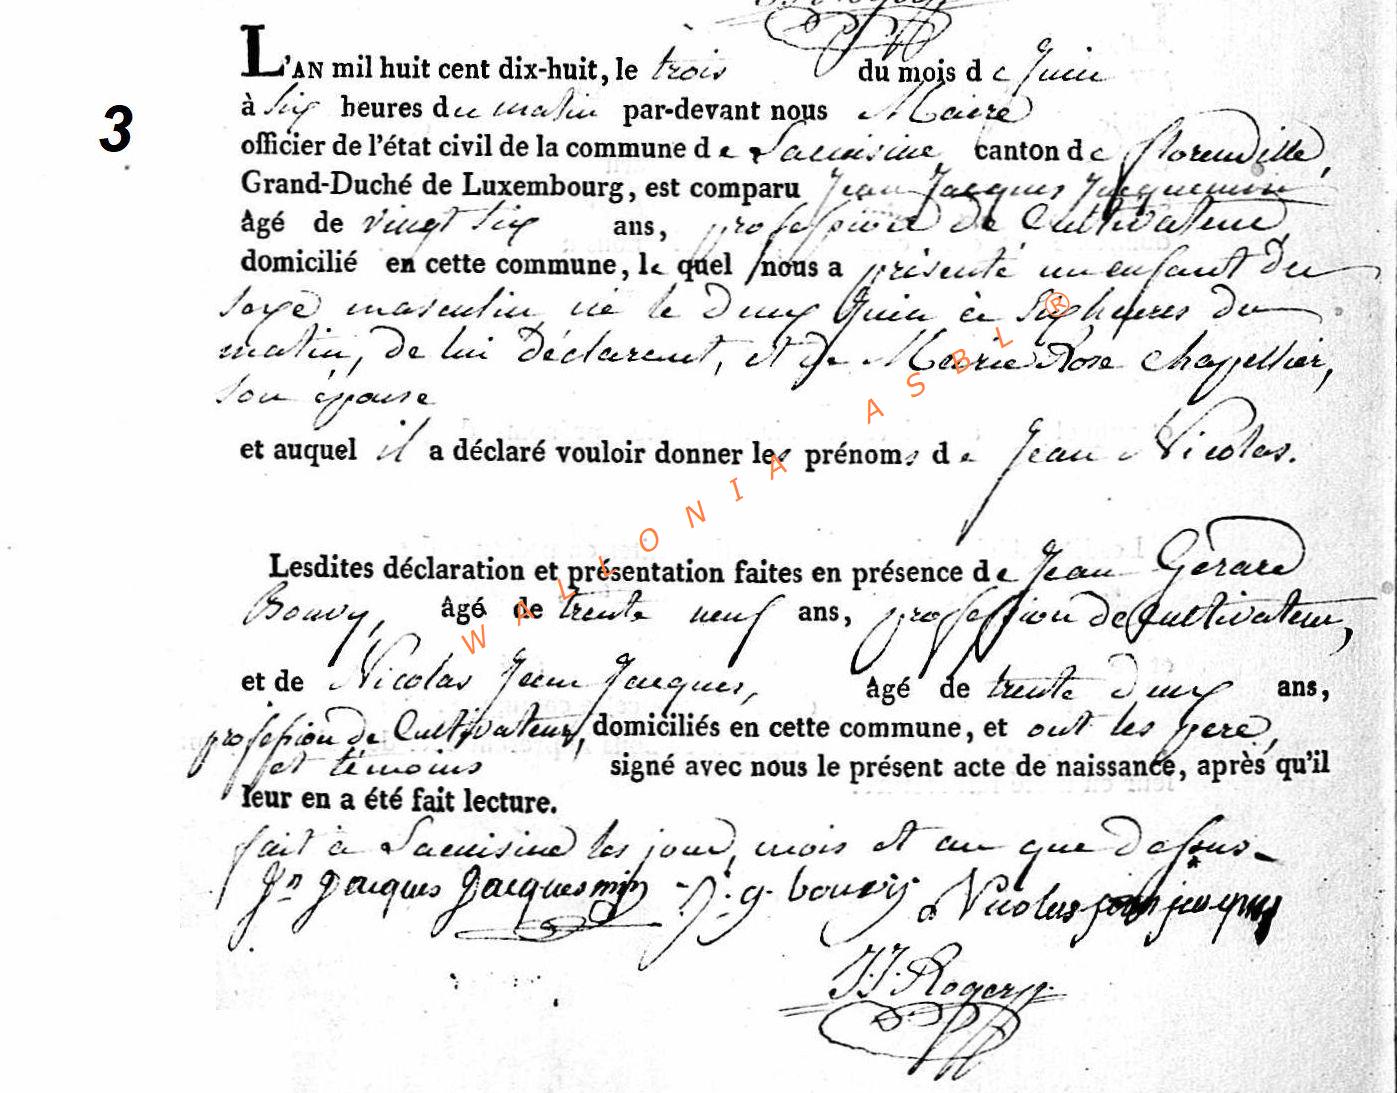 3
L'AN mil huit cent dix-huit, le trois du mois de Juin
à six heures du matin par-devant nous Maire
officier de l'état civil de la commune de Lacuisine, canton de Florenville,
Grand-Duché de Luxembourg, est comparu Jean Jacques Jacquemin
âgé de vingt six ans, profession de Cultivateur,
domicilié en cette commune, lequel nous a présenté un enfant du
sexe masculin né le deux Juin à six heures du
matin, de lui déclarant, et de Marie Rose Chapellier,
son épouse
et auquel il a déclaré vouloir donner les prénoms de Jean Nicolas.
Lesdites déclaration et présentation faites en présence de Jean Gérard
Bouvy, âgé de trente neuf ans, profession de Cultivateur,
et de Nicolas Jean Jacques, âgé de trente deux ans,
profession de Cultivateur, domiciliés en cette commune, et ont les père,
et témoins signé avec nous le présent acte de naissance, après qu'il
leur en a été fait lecture.
fait à Lacuisine les jour, mois et an que dessus
Jn Jacques Jacquesmin J. g. bouvy Nicolas jean jacques
J.J. Rogery
WALLONIA ASBL ®